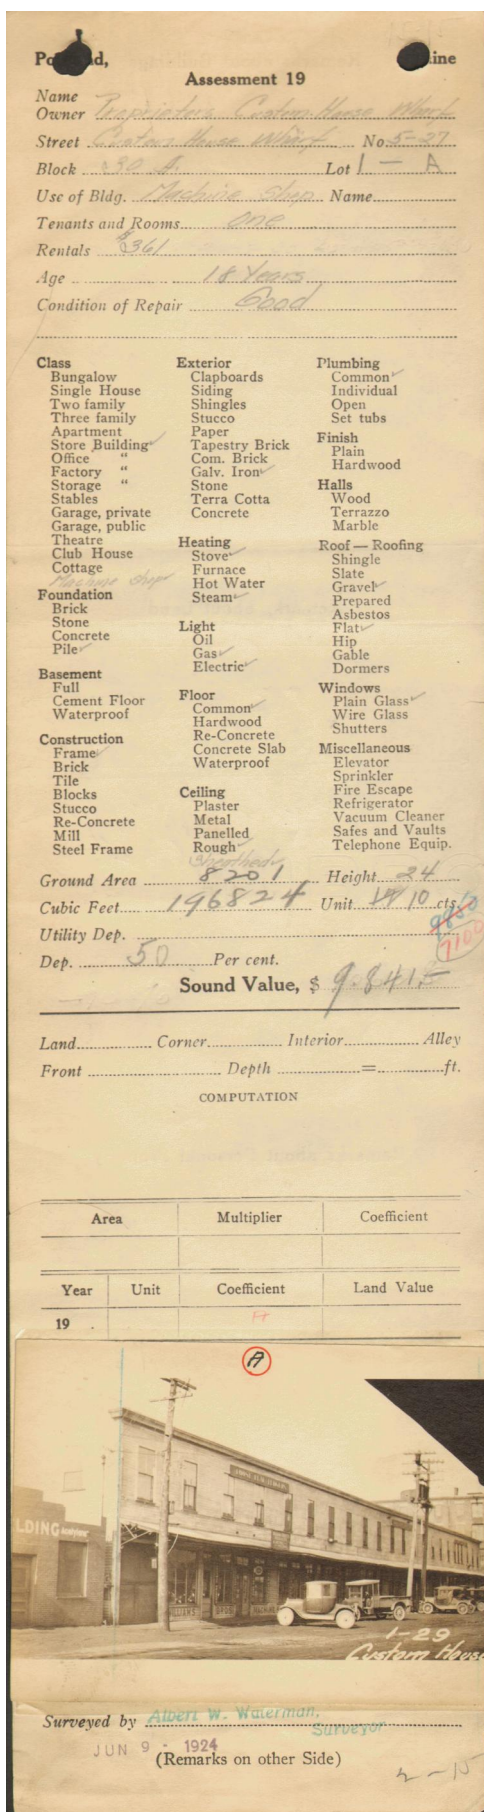 Portland, Maine
Assessment 19
Name
Owner Proprietors Custom House Wharf
Street Custom House Wharf No. 5-27
Block 30 A. Lot 1 - A
Use of Bldg. Machine Shop Name
Tenants and Rooms one
Rentals $361
Age 18 Years
Condition of Repair Good
Class
Bungalow
Single House
Two family
Three family
Apartment
Store Building ✓
Office "
Factory "
Storage "
Stables
Garage, private
Garage, public
Theatre
Club House
Cottage
Machine Shop ✓
Foundation
Brick
Stone
Concrete
Pile ✓
Basement
Full
Cement Floor
Waterproof
Construction
Frame ✓
Brick
Tile
Blocks
Stucco
Re-Concrete
Mill
Steel Frame
Exterior
Clapboards
Siding
Shingles
Stucco
Paper
Tapestry Brick
Com. Brick
Galv. Iron ✓
Stone
Terra Cotta
Concrete
Heating
Stove ✓
Furnace
Hot Water
Steam ✓
Light
Oil
Gas ✓
Electric ✓
Floor
Common ✓
Hardwood
Re-Concrete
Concrete Slab
Waterproof
Ceiling
Plaster
Metal
Panelled
Rough ✓
Sheathed ✓
Plumbing
Common ✓
Individual
Open
Set tubs
Finish
Plain
Hardwood
Halls
Wood
Terrazzo
Marble
Roof — Roofing
Shingle
Slate
Gravel ✓
Prepared
Asbestos
Flat ✓
Hip
Gable
Dormers
Windows
Plain Glass ✓
Wire Glass
Shutters
Miscellaneous
Elevator
Sprinkler
Fire Escape
Refrigerator
Vacuum Cleaner
Safes and Vaults
Telephone Equip.
Ground Area 8201 Height 24
Cubic Feet 196824 Unit 10 cts.
9850
7100
Utility Dep.
Dep. 50 Per cent.
Sound Value, $ 9.841.-
Land Corner Interior Alley
Front Depth = ft.
COMPUTATION
Area Multiplier Coefficient
Year Unit Coefficient Land Value
19
A
LDING
1-29
Custom House
Surveyed by Albert W. Waterman,
Surveyor
JUN 9 - 1924
(Remarks on other Side)
2-15